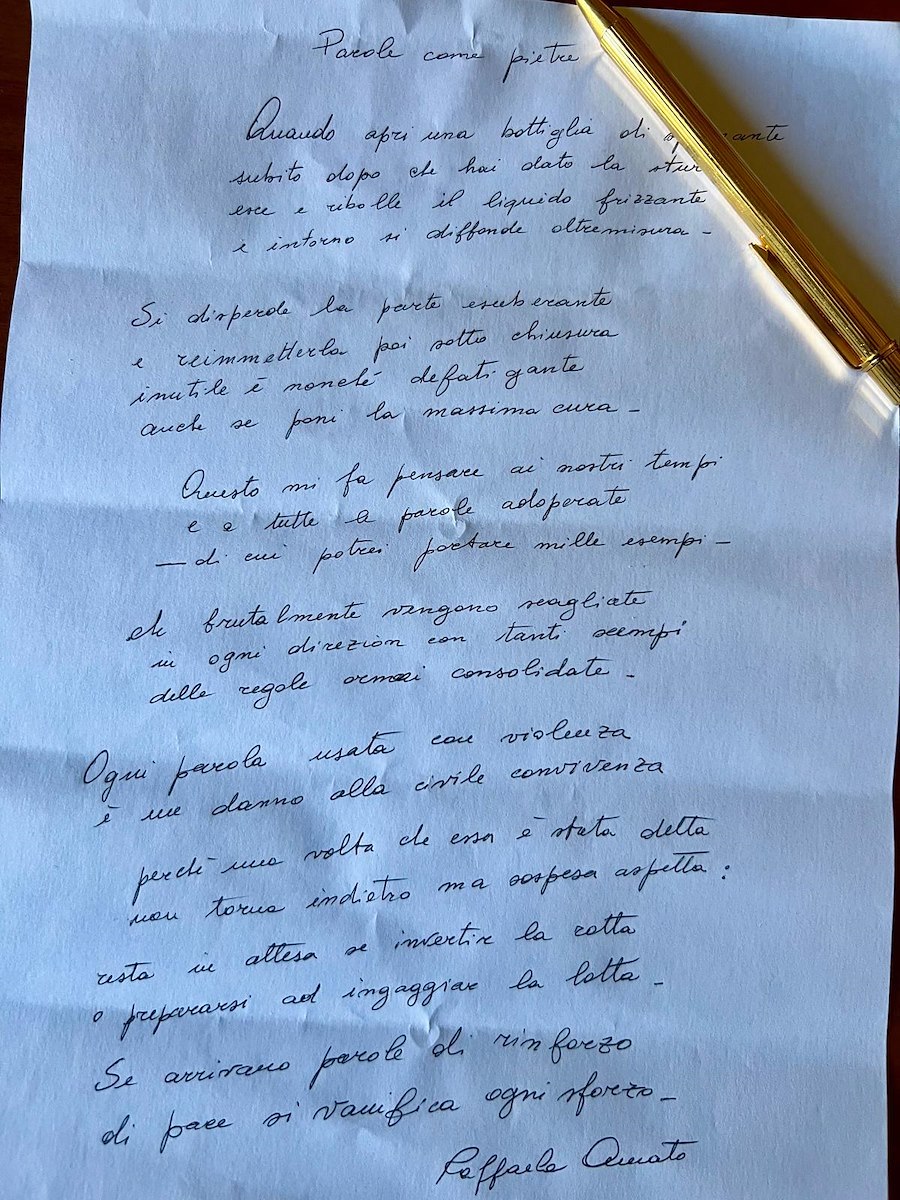 Parole come pietre
Quando apri una bottiglia di
subito dopo che hai dato la
esce e ribolle il liquido frizzante
e intorno si diffonde oltremisura -
Si disperde la parte esuberante
e reimmetterla poi sotto chiusura
inutile è nonché defatigante
anche se poni la massima cura -
Questo mi fa pensare ai nostri tempi
e a tutte le parole adoperate
- di cui potrei portare mille esempi -
che brutalmente vengono scagliate
in ogni direzion con tanti scempi
delle regole ormai consolidate -
Ogni parola usata con violenza
è un danno alla civile convivenza
perché una volta che essa è stata detta
non torna indietro ma sospesa aspetta:
resta in attesa se invertir la rotta
o prepararsi ad ingaggiar la lotta -
Se arrivano parole di rinforzo
di pace si vanifica ogni sforzo -
Raffaela Amato